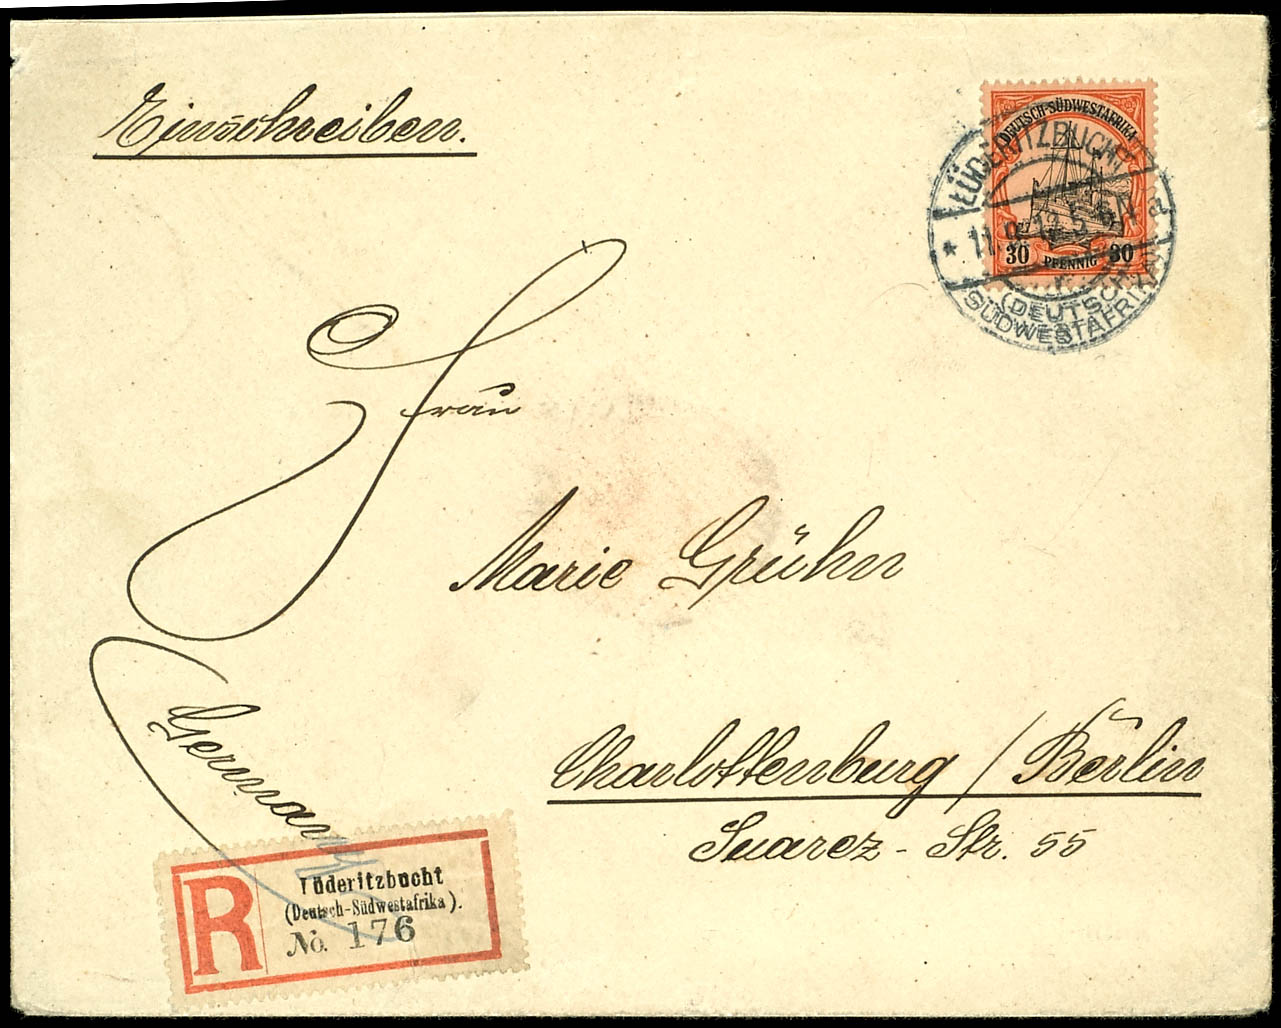 Einschreiben.
DEUTSCH-SÜDWESTAFRIKA
30 PFENNIG 30
LÜDERITZBUCHT
* a
(DEUTSCH-
SÜDWESTAFRIKA)
Frau
Marie Grühn
Charlottenburg / Berlin
Suarez-Str. 55
Germany
R
Lüderitzbucht
(Deutsch-Südwestafrika).
No. 176